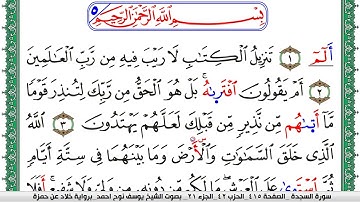 بِسْمِ اللَّهِ الرَّحْمَٰنِ الرَّحِيمِ
الٓمٓ ١ تَنزِيلُ الْكِتَابِ لَا رَيْبَ فِيهِ مِن رَّبِّ الْعَالَمِينَ
٢ أَمْ يَقُولُونَ افْتَرَىٰهُ ۚ بَلْ هُوَ الْحَقُّ مِن رَّبِّكَ لِتُنذِرَ قَوْمًا
مَّا أَتَىٰهُم مِّن نَّذِيرٍ مِّن قَبْلِكَ لَعَلَّهُمْ يَهْتَدُونَ ٣ اللَّهُ
الَّذِى خَلَقَ السَّمَٰوَٰتِ وَالْأَرْضَ وَمَا بَيْنَهُمَا فِى سِتَّةِ أَيَّامٍ
ثُمَّ اسْتَوَىٰ عَلَى الْعَرْشِ ۖ مَا لَكُم مِّن دُونِهِ مِن وَلِىٍّ وَلَا شَفِيعٍ ۚ أَفَلَا
سورة السجدة الصفحة ٤١٥ الحزب ٤٢ الجزء ٢١ بصوت الشيخ يوسف نوح احمد برواية خلاد عن حمزة